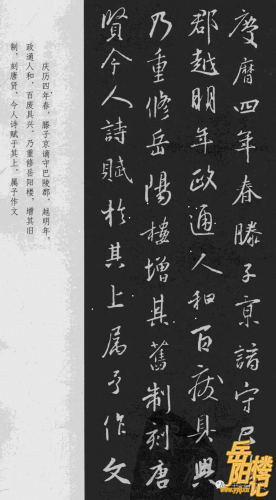 慶曆四年春滕子京謫守巴
郡越明年政通人和百廢具興
乃重修岳陽樓增其舊制刻唐
賢今人詩賦於其上屬予作文
庆历四年春，滕子京谪守巴陵郡。越明年，
政通人和，百废具兴，乃重修岳阳楼，增其旧
制，刻唐贤、今人诗赋于其上，属予作文
岳阳楼记